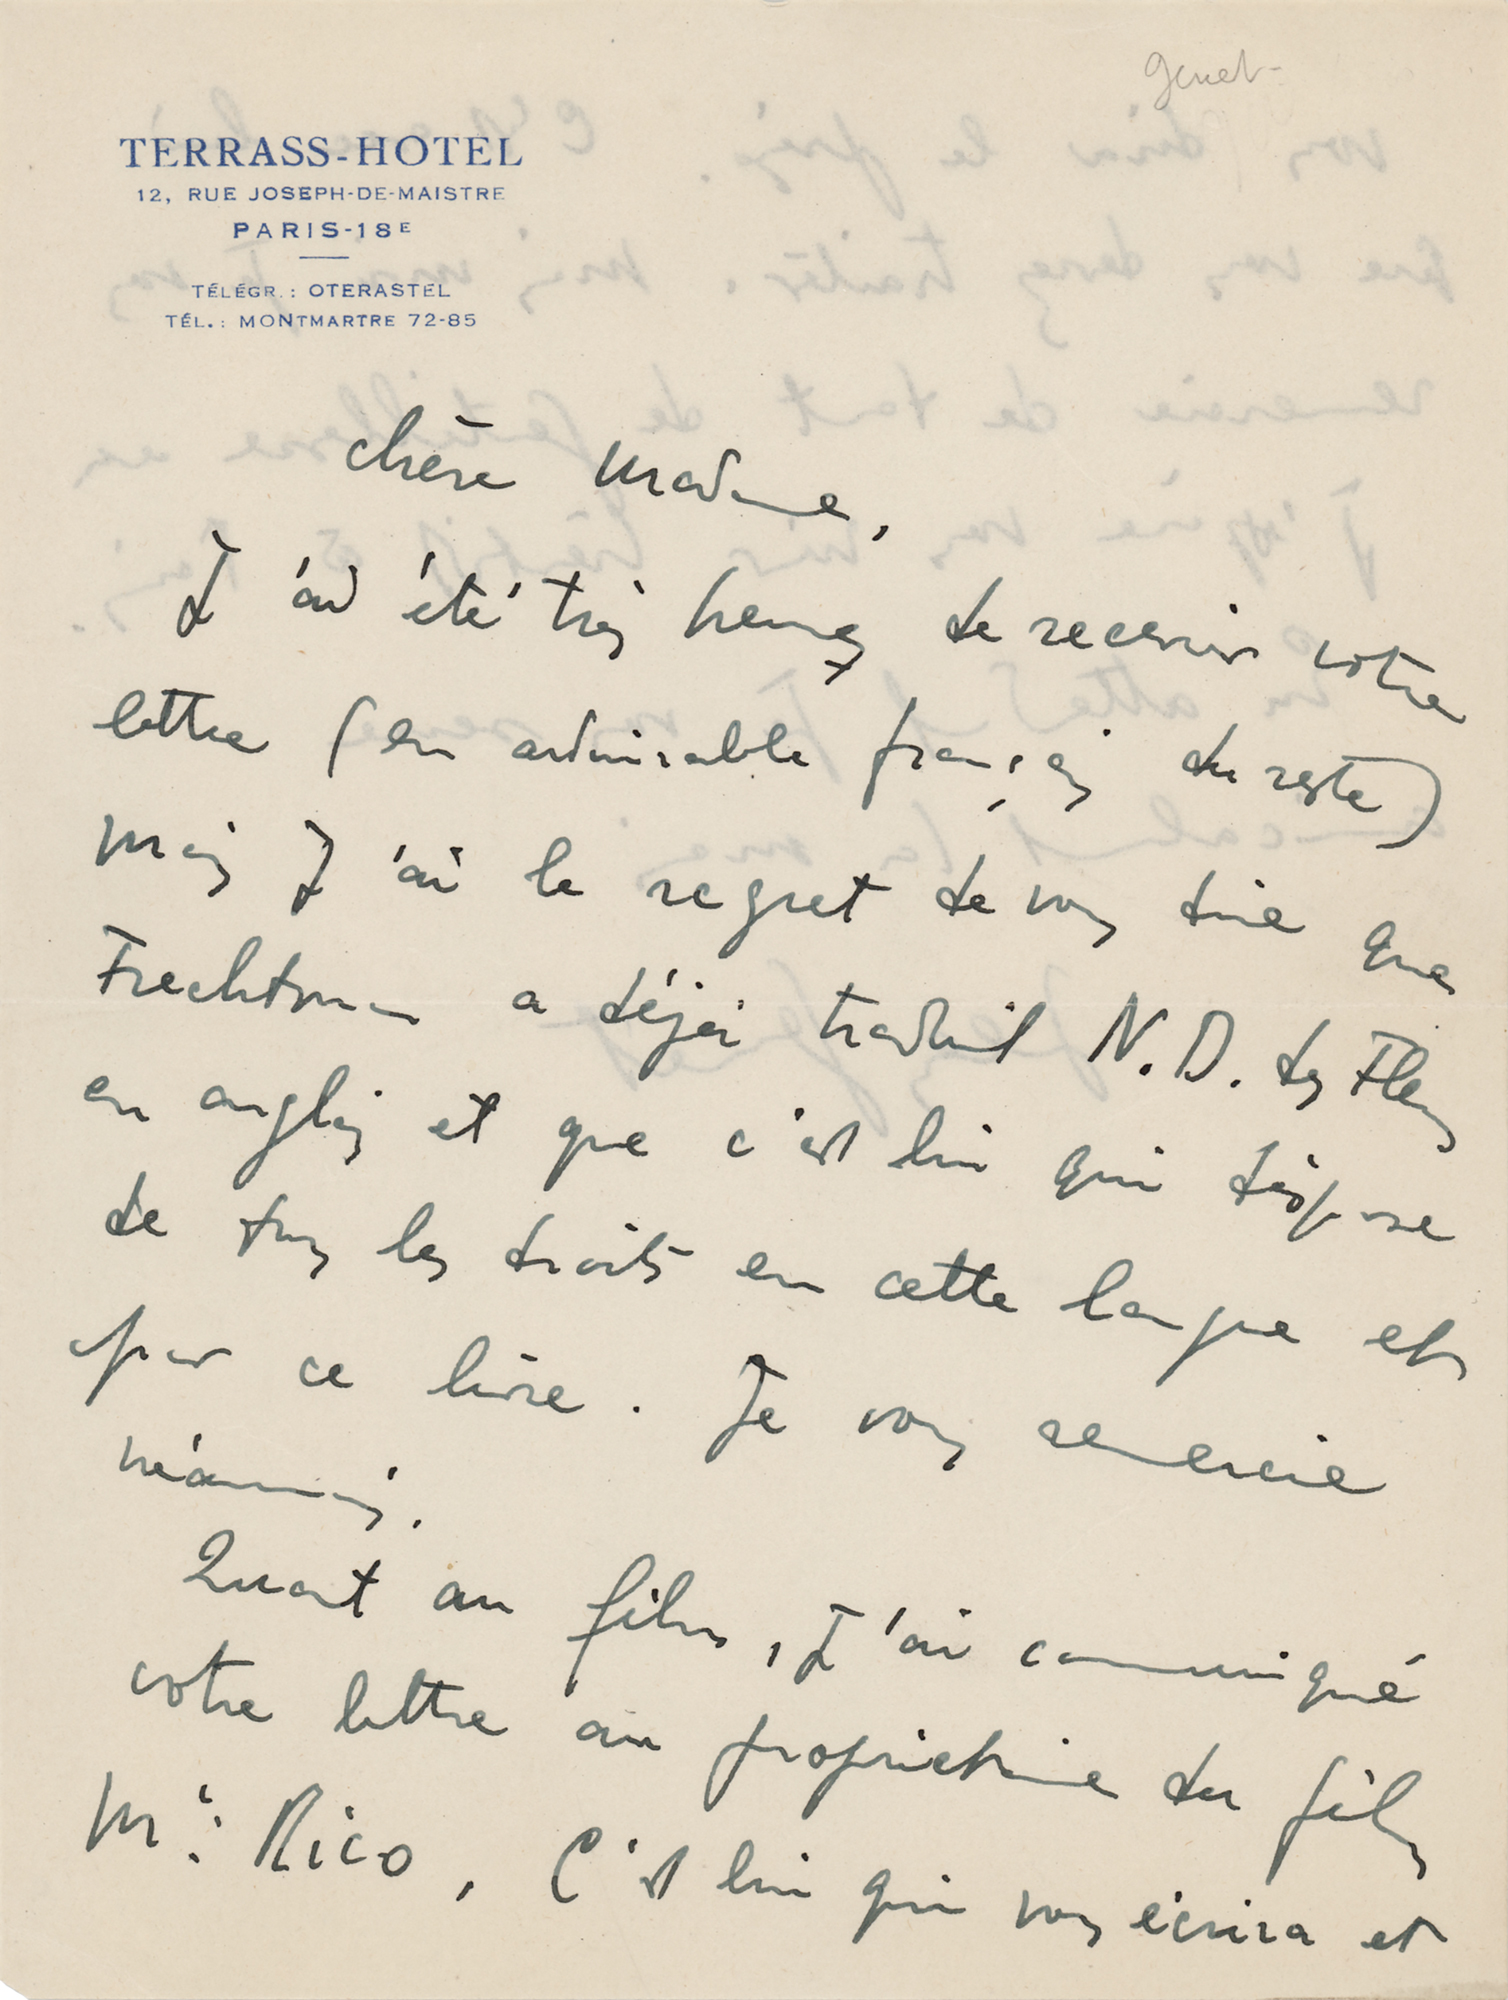 Genet
TERRASS-HOTEL
12, RUE JOSEPH-DE-MAISTRE
PARIS-18E
TÉLÉGR. : OTERASTEL
TÉL. : MONTMARTRE 72-85
chère madame,
J'ai été très heureux de recevoir votre
lettre (en admirable français du reste)
mais J'ai le regret de vous dire que
Frechtman a déjà traduit N.D. des Fleurs
en anglais et que c'est lui qui dispose
de tous les droits en cette langue et
pour ce livre. Je vous remercie
néanmoins.
Quant au film, J'ai communiqué
votre lettre au propriétaire du film
Mr : Rico, C'est lui qui vous écrira et